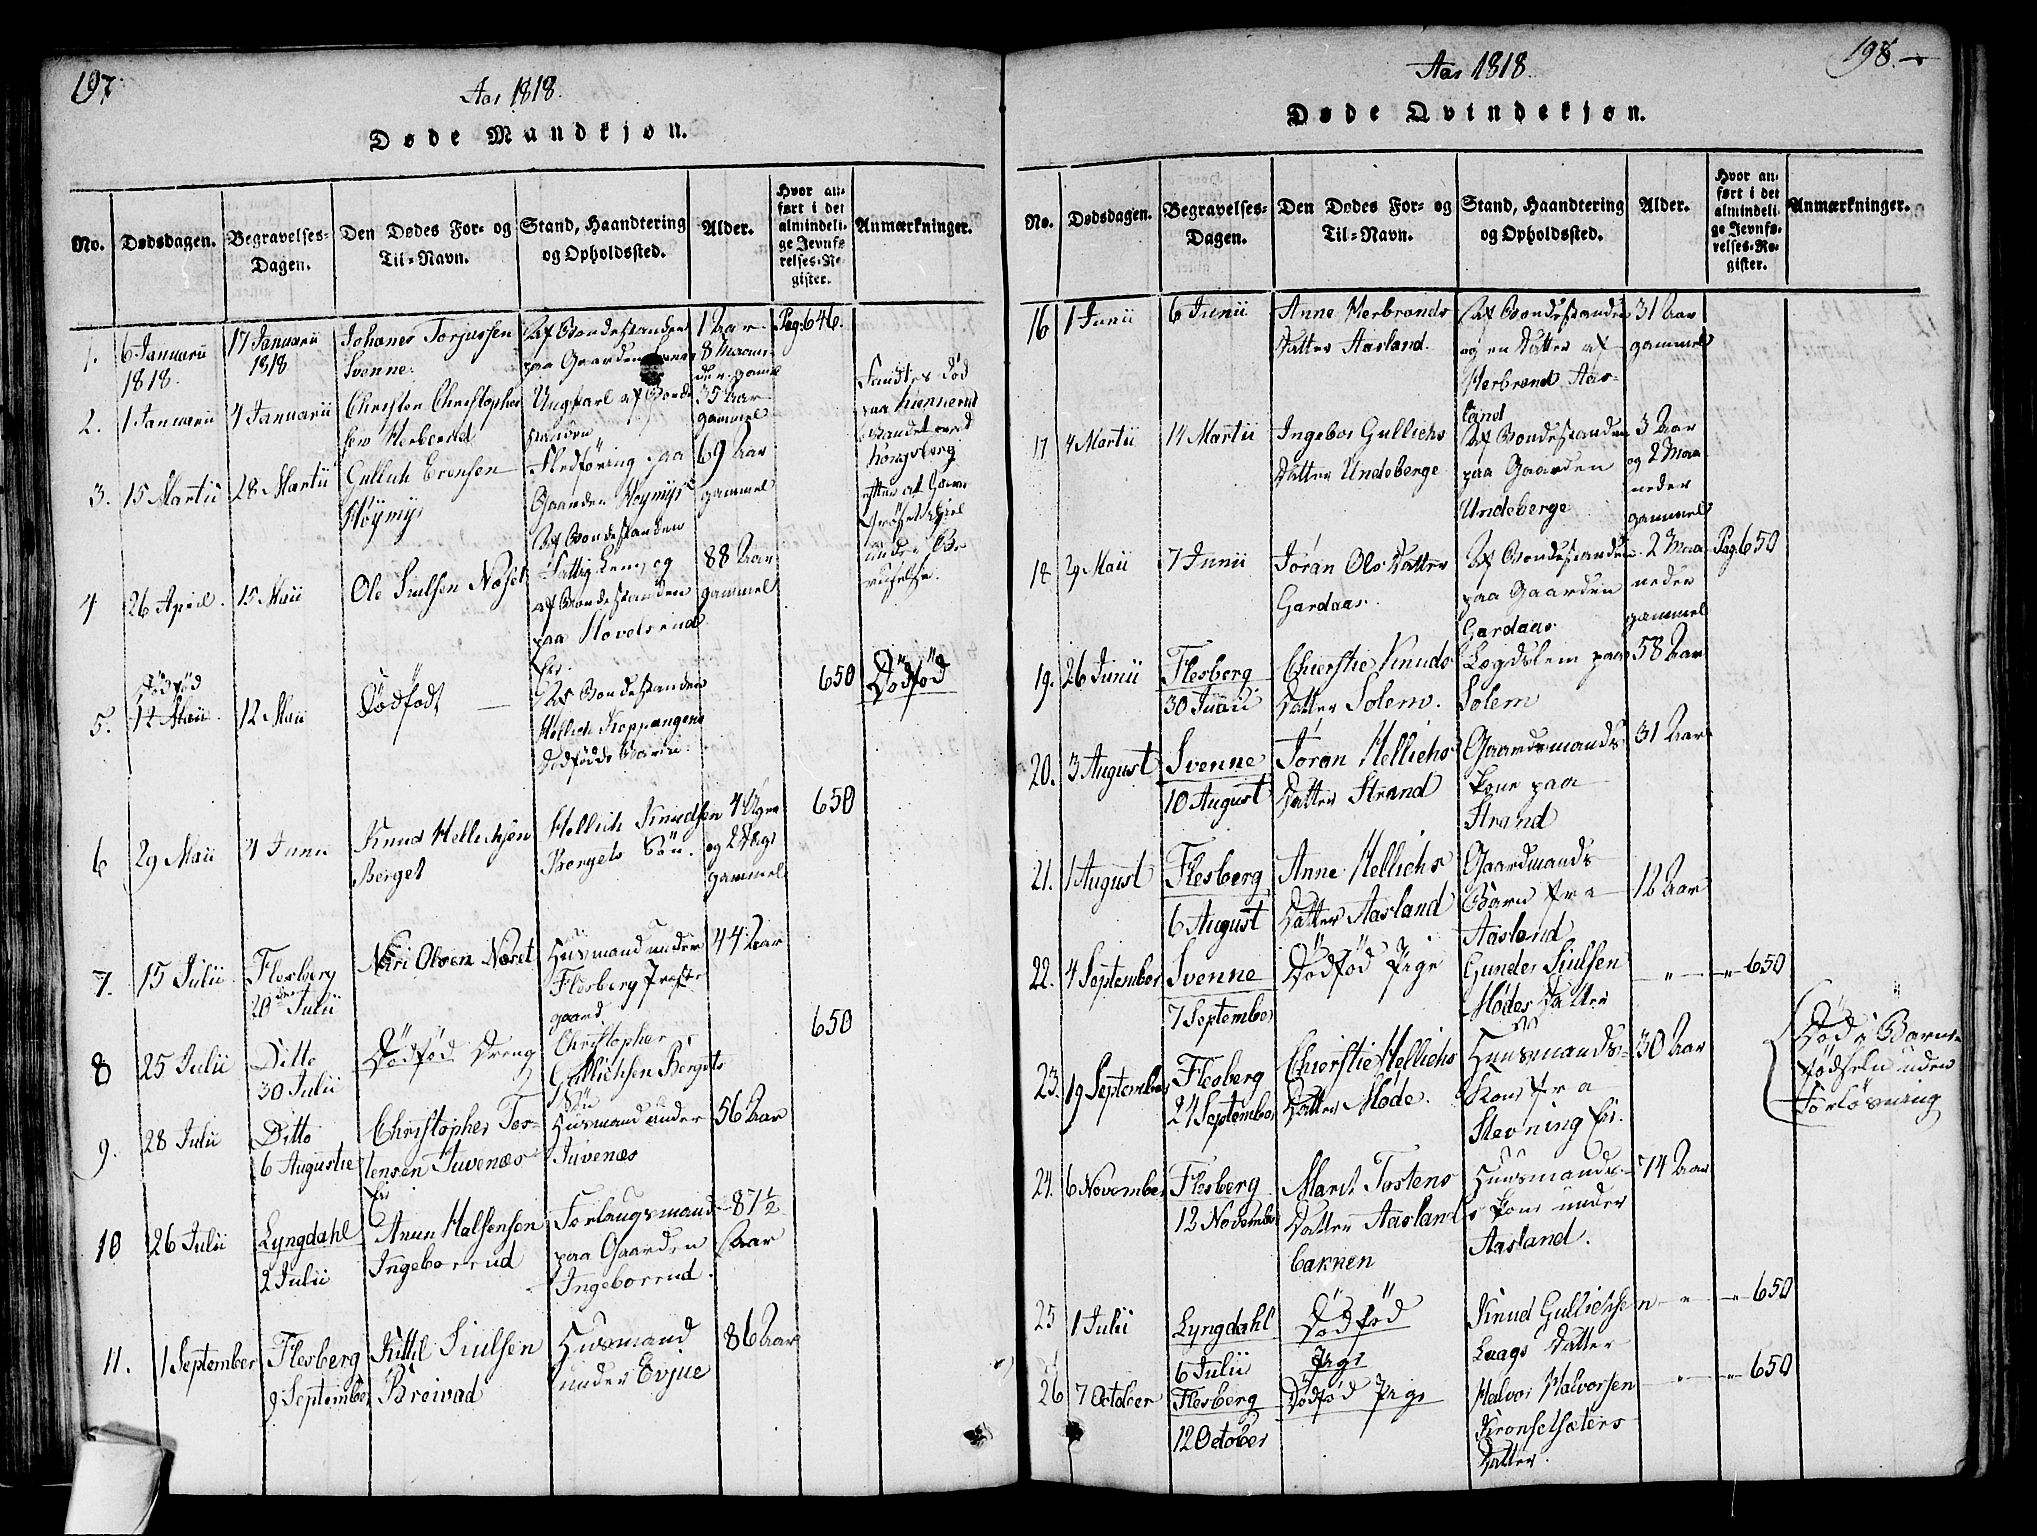 197.
Aar 1818.
Døde Mandkjøn.
No.
Dødsdagen.
Begravelses-
Dagen.
Den Dødes For- og
Til-Navn.
Stand, Haandtering
og Opholdssted.
Alder.
Hvor an-
ført i det
almindeli-
ge Jevnfø-
relses-Re-
gister.
Anmærkninger.
1.
6 Januarii
1818.
17 Januarii
1818
Johanes Torjussen
Svenne.
Af Bondestanden
paa Gaarden
1 Aar
8 Maane-
der gamel
Pag: 646.
2.
1 Januarii
4 Januarii
Christen Christopher
sen Herbrend
Ungkarl af Bonde
standen
35 Aar
gammel
Fandtes død
paa
ved
Kongsberg
efter at have
under Be
ruselse.
3.
15 Martii
28 Martii
Gullich Evensen
Høymyr
Fledføring paa
Gaarden Høymyr
Af Bondestanden
69 Aar
gammel
4
26 April.
15 Maii
Ole Siulsen Næset
Fattig Lem, og
af Bondestanden
paa Hovelsrud
Eie.
88 Aar
gammel
5.
Dødfød
12 Maii.
12 Maii
Dødfødt
Af Bondestanden
Hellich Koppangens
Dødfødde Barn.
650
Dødfød
6
29 Maii
4 Junii
Knud Hellichsen
Berget
Hellich Knudsen
Bergets Søn.
4 Uger
og 2 Dags
gammel
650
7.
15 Julii
Flesberg
20de Julii
Neri Olsen Næset
Huusmand under
Flesberg Præste
gaard
44 Aar
8
25 Julii
Ditto
30 Julii
Dødfød Dreng
Christopher
Gullichsen Bergets
Søn
650
9.
28 Julii
Ditto
6 Augustie
Christopher Tor-
stensen Juvenæs
Eie
Huusmand under
Juvenæs
56 Aar
10
26 Julii
Lyngdahl
2 Julii
Anun Halsensen
Ingeborrud
Forlaugsmand
paa Gaarden
Ingeborrud.
87½
Aar
11.
1 September
Flesberg
9 September
Kittil Siulsen
Breivad
Huusmand
under Evjue
86 Aar
198.
Aar 1818.
Døde Qvindekjøn.
No.
Dødsdagen.
Begravelses-
Dagen.
Den Dødes For- og
Til-Navn.
Stand, Haandtering
og Opholdssted.
Alder.
Hvor an-
ført i det
almindeli-
ge Jevnfø-
relses-Re-
gister.
Anmærkninger.
16
1 Junii
6 Junii
Anne Herbrands
Datter Aasland.
Af Bondestanden
og en Datter af
Herbrand Aas-
land
31 Aar
gammel
17
4 Martii
14 Martii
Ingebor Gullichs
Datter Undeberge
Af Bondestanden
paa Gaarden
Undeberge
3 Aar
og 2 Maa
neder
gammel
18
29 Maii
7 Junii
Jøran Ols Datter
Gardaas.
Af Bondestanden
paa Gaarden
Gardaas
2 Maa
neder
gammel
Pag: 650
19.
26 Junii
Flesberg
30 Junii
Chierstie Knuds
Datter Solem.
Legdslem paa
Solem
58 Aar
20.
3 August
Svenne
10 August
Jøran Hellichs
Datter Strand
Gaardmands
kone paa
Strand
31 Aar
21.
1 August
Flesberg
6 August
Anne Hellichs
Datter Aasland
Gaardmands
Barn fra
Aasland
12 Aar
22.
4 September
Svenne
7 September
Dødfød Pige
Gunder Siulsen
Mødes Datter
„
„ 650
23.
19 September
Flesberg
24 September
Chierstie Hellichs
Datter Møde.
Huusmands
Kone fra
Stevning Eie.
30 Aar
Død i Barn-
fødselen uden
Forløsning
24.
6 November
Flesberg
12 November
Marit Tostens
Datter Aaslands
bakken
Huusmands
kone under
Aasland.
74 Aar
25
1 Julii
Lyngdahl
6 Julii
Dødfød
Pige
Knud Gullichsen
Laags Datter
„
„ 650
26
7 October
Flesberg
12 October
Dødfød Pige
Halvor Halvorsen
Kronsetsæters
Datter.
„
„ 650